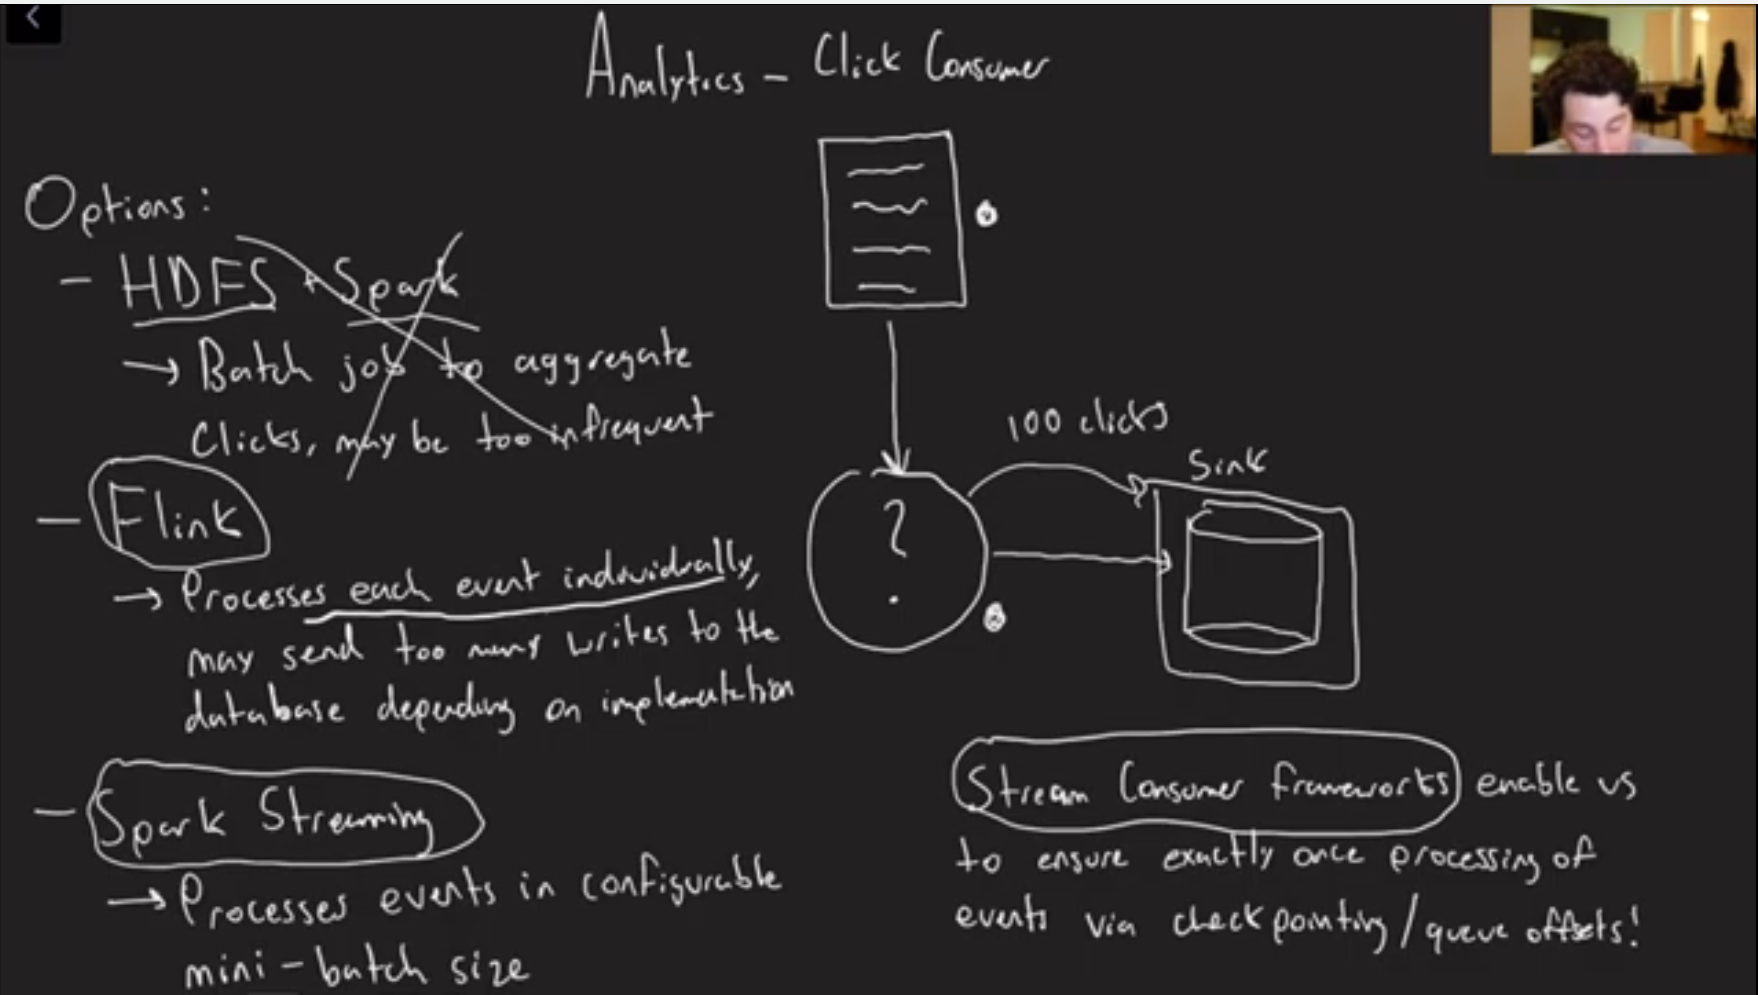 Analytics - Click Consumer
Options:
- HDFS + Spark
→ Batch job to aggregate
Clicks, may be too infrequent
- Flink
→ Processes each event individually,
may send too many writes to the
database depending on implementation
- Spark Streaming
→ Processes events in configurable
mini-batch size
?
100 clicks
Sink
Stream Consumer frameworks enable us
to ensure exactly once processing of
events via checkpointing/queue offsets!